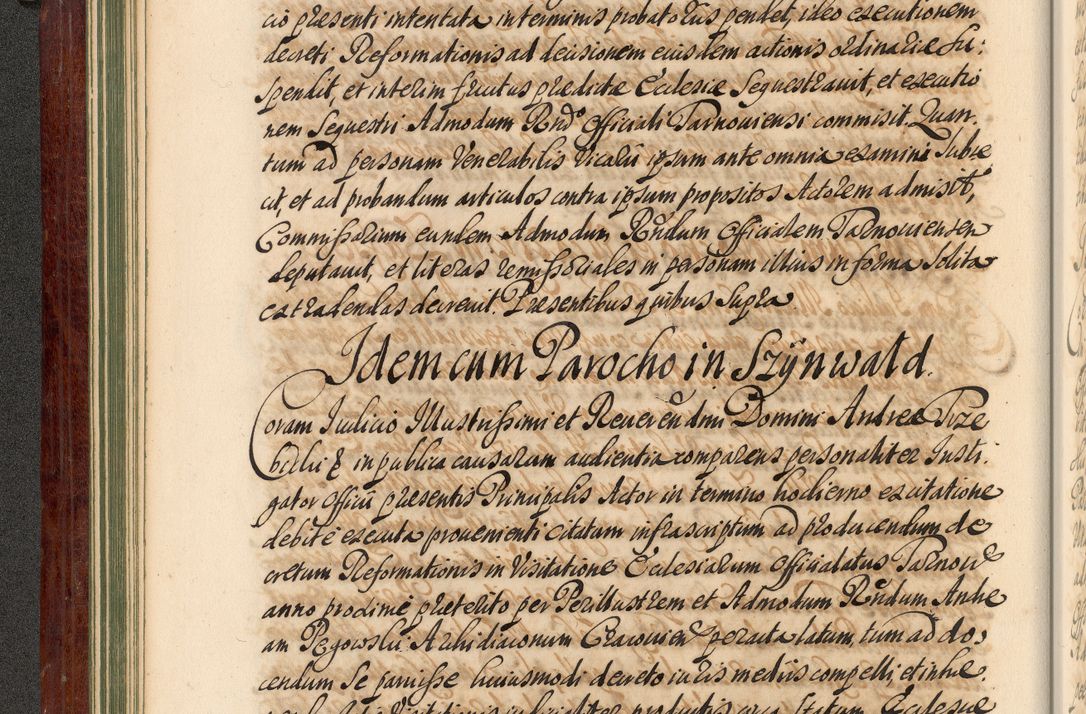 cio presenti intentata in terminis probatorijs pendet, ideo executionem
decreti Reformationis ad decisionem eiusdem actionis ordinariæ su:
spendit, et interim fructus prædictæ Ecclesiæ sequestrauit, et executio
nem sequestri Admodum Rndo Officiali Tarnouiensi commisit. Quan
tum ad personam Venerabilis Vicarii ipsum ante omnia examini subie
cit, et ad probandum articulos contra ipsum propositos Actorem admisit,
Commissarium eundem Admodum Rndum Officialem Tarnouiensem
deputauit, et literas remissoriales in personam illius in forma solita
extradendas decreuit. Præsentibus quibus supra
Idem cum Parocho in Szÿnwald.
Coram Iudicio Illustrissimi et Reuerendmi Domini Andreæ Trze
bicki & in publica causarum audientia comparens personaliter Insti:
gator Officii præsentis Principalis Actor in termino hodierno ex citatione
debitè executa proueniente citatum infrascriptum ad producendum de
cretum Reformationis in Visitatione Ecclesiarum Officialatus Tarnouien
anno proximè præterito per Perillustrem et Admodum Rndum Andre
am Pęgowski Archidiaconum Cracouien peracta latum, tum ad do:
cendum se paruisse huiusmodi decreto iuris mediis compelli, et inhæ:
Visitationis productis circa statum Ecclesiæ